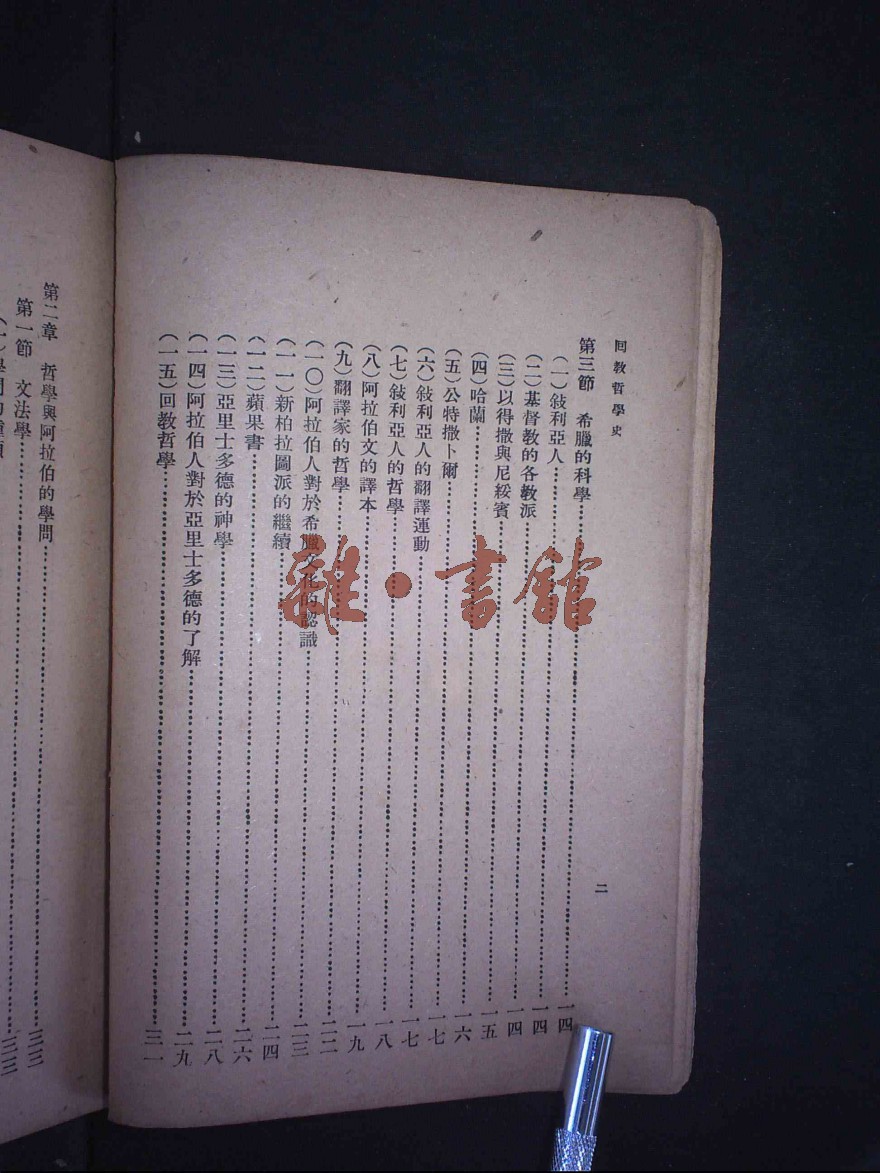 回教哲學史
二
第三節 希臘的科學……一四
(一)敍利亞人……一四
(二)基督教的各教派……一四
(三)以得撒與尼綏賓……一五
(四)哈蘭……一六
(五)公特撒卜爾……一七
(六)敍利亞人的翻譯運動……一七
(七)敍利亞人的哲學……一八
(八)阿拉伯文的譯本……一九
(九)翻譯家的哲學……二二
(一〇)阿拉伯人對於希臘文化的認識……二三
(一一)新柏拉圖派的繼續……二四
(一二)蘋果書……二六
(一三)亞里士多德的神學……二八
(一四)阿拉伯人對於亞里士多德的了解……二九
(一五)回教哲學……三一
第二章 哲學與阿拉伯的學問……三三
第一節 文法學……三三
雜·書館